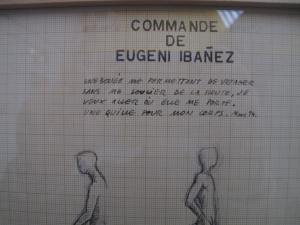 COMMANDE
DE
EUGENI IBAÑEZ
UNE BOUÉE ME PERMETTANT DE VOYAGER
SANS ME SOUCIER DE LA ROUTE, JE
VEUX ALLER OÙ ELLE ME PORTE.
UNE QUILLE POUR MON CORPS.